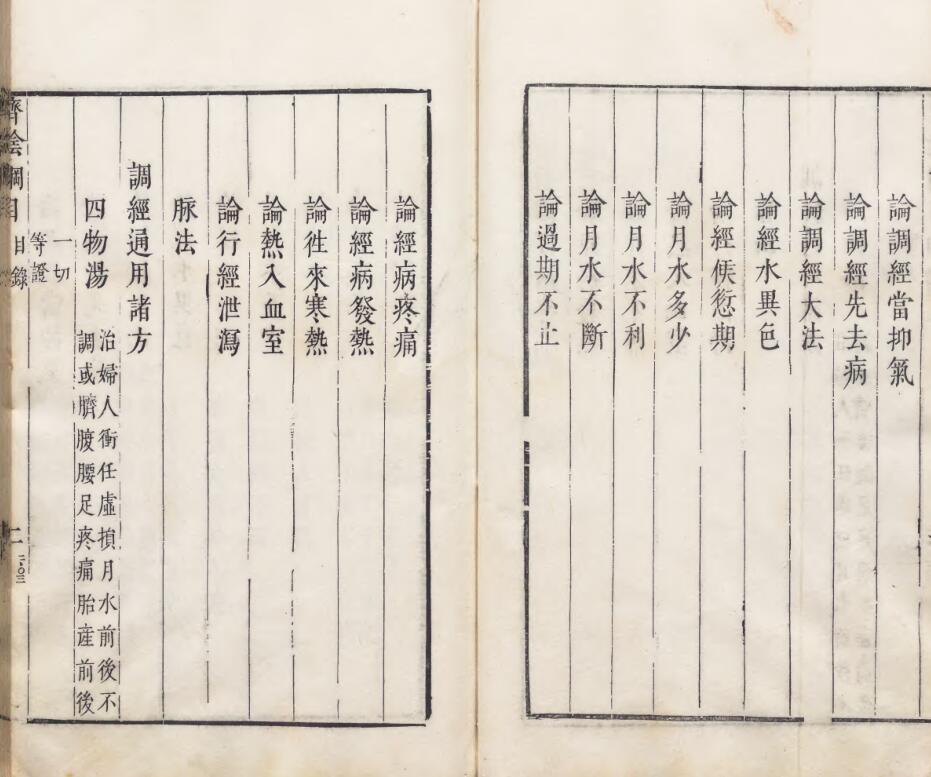 論調經當抑氣
論調經先去病
論調經大法
論經水異色
論經候愆期
論月水多少
論月水不利
論月水不斷
論過期不止
論經病疼痛
論經病發熱
論徃來寒熱
論熱入血室
論行經泄瀉
脉法
調經通用諸方
四物湯
治婦人衝任虛損月水前後不
調或臍腹腰足疼痛胎產前後
一切
等證
濟陰綱目
目錄
二
二〇三